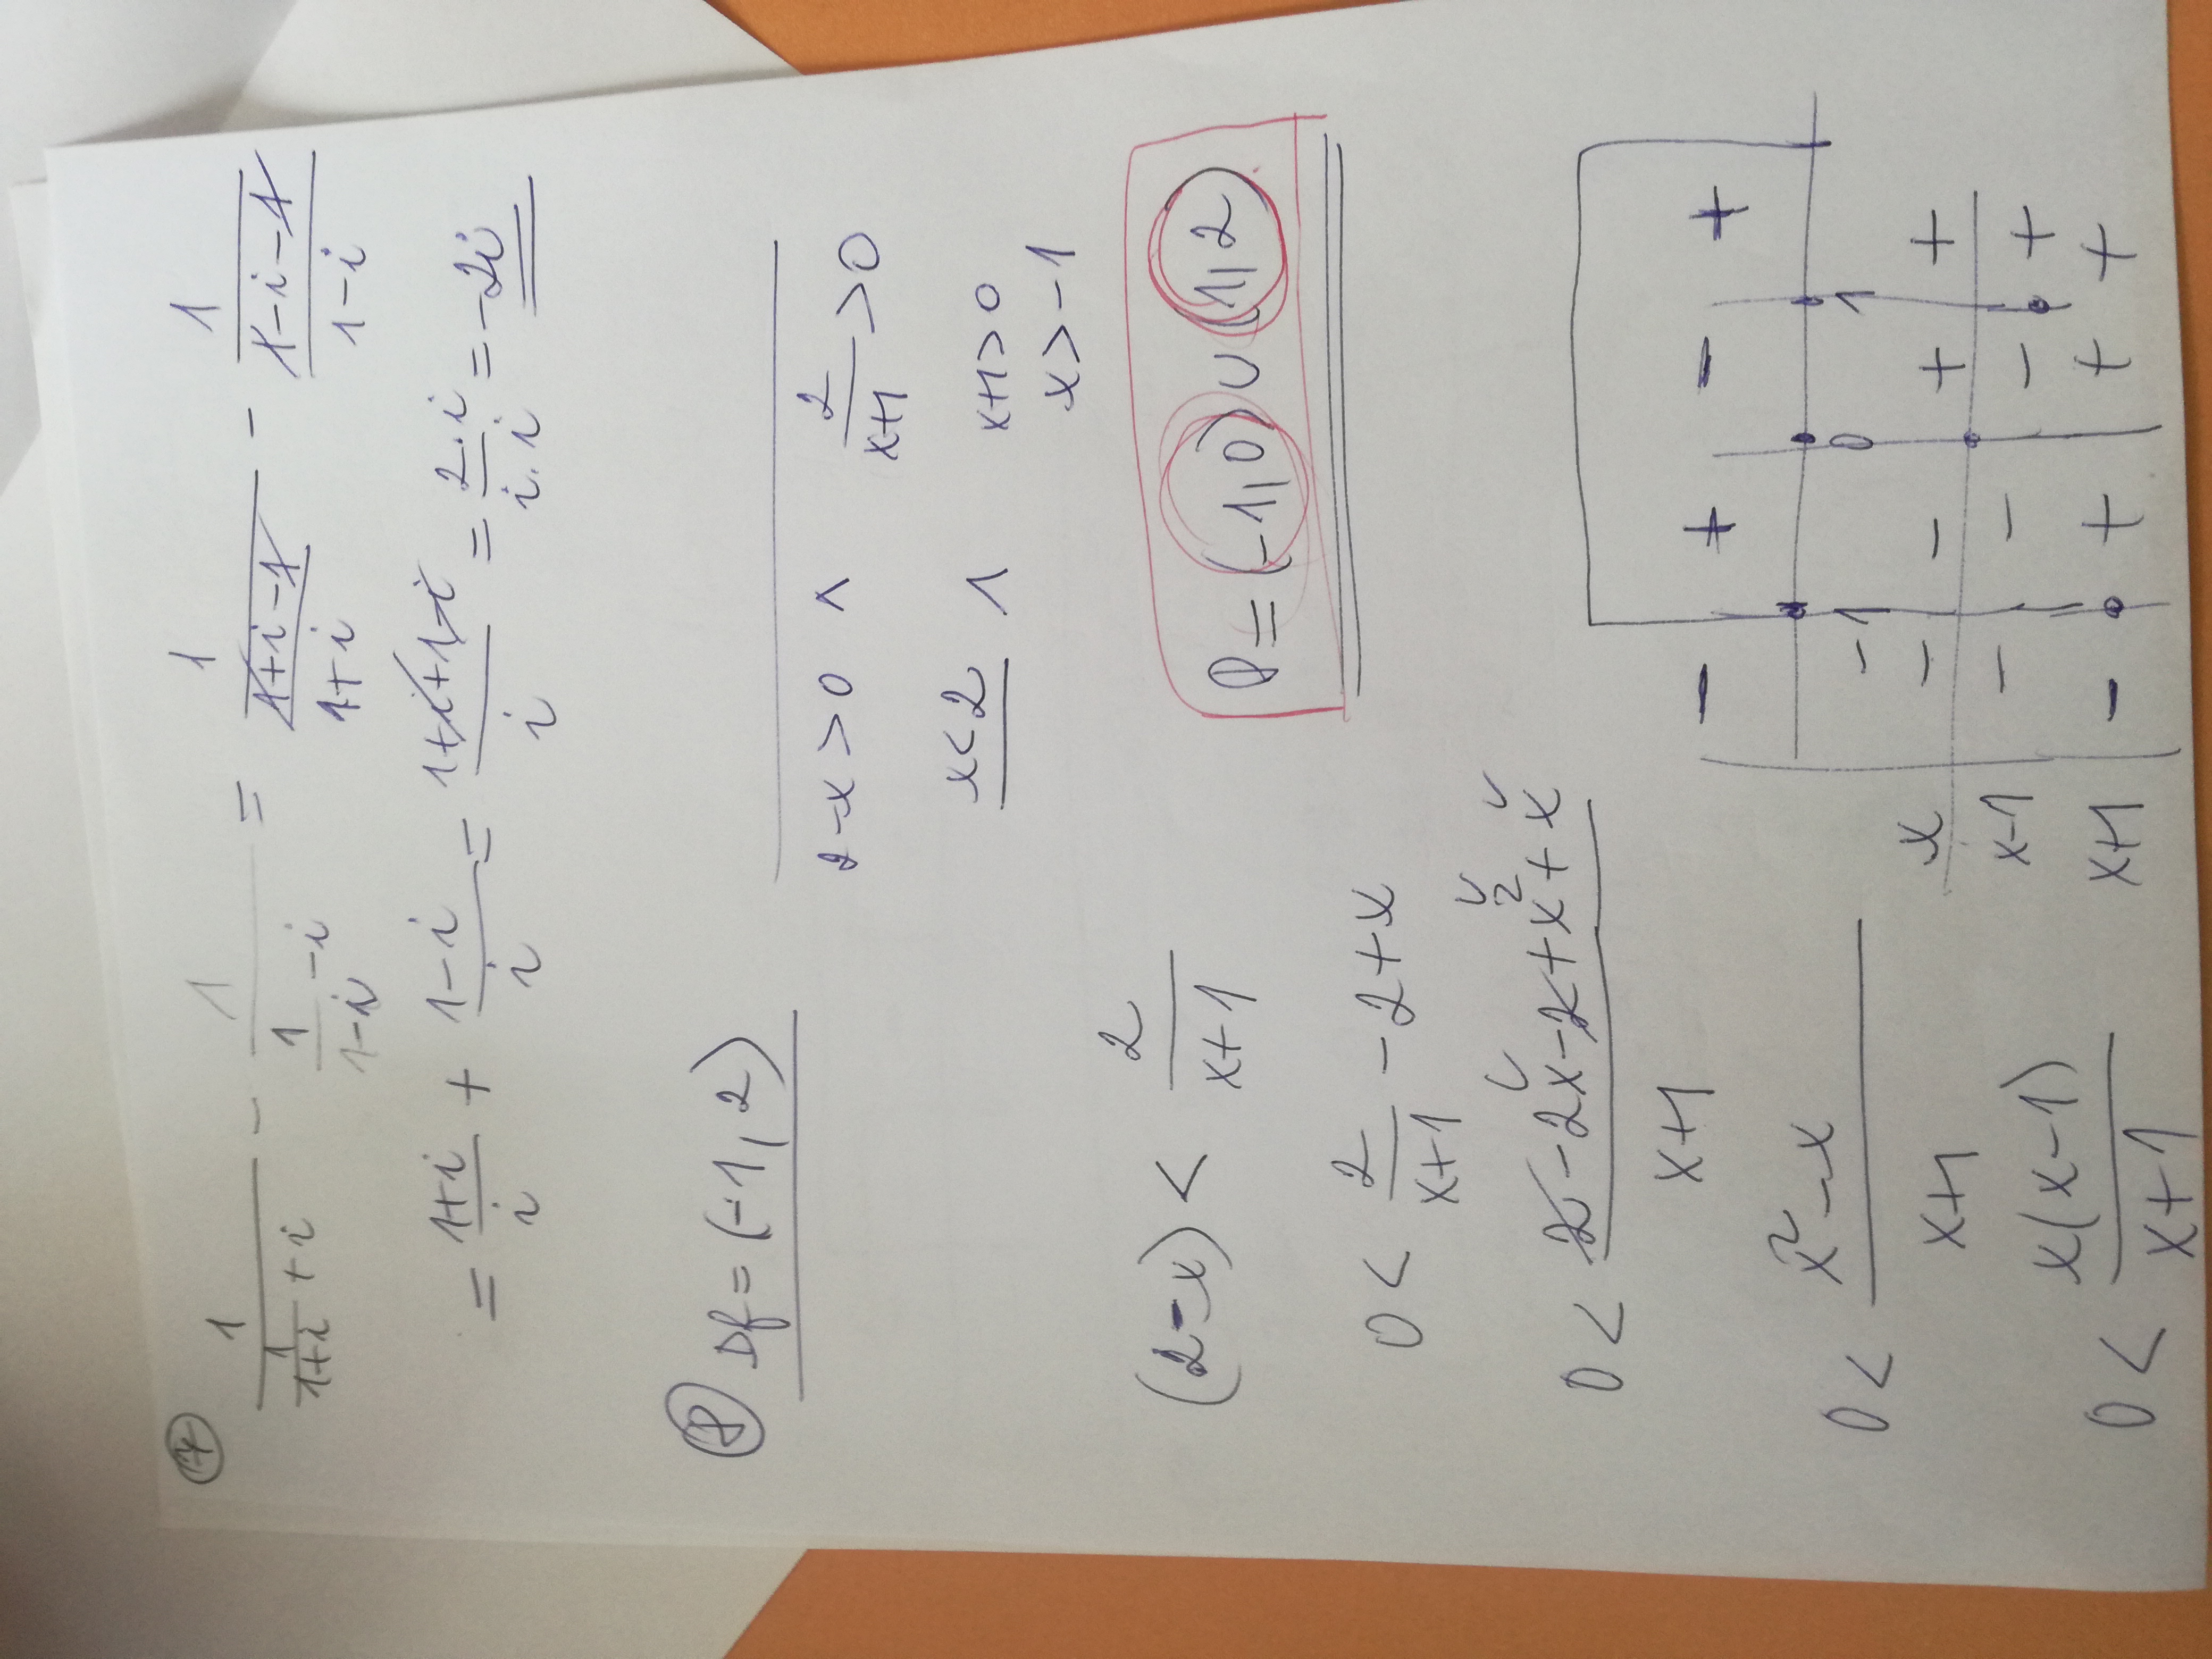 ⑦ 1/(1/(1+i) + i) - 1/(1/(1-i) - i) = 1/((1+i-1)/(1+i)) - 1/((1-i-1)/(1-i))
= (1+i)/i + (1-i)/i = (1+i+1-i)/i = (2·i)/(i·i) = -2i
⑧ Df = (-1, 2)
2-x > 0 ∧ 2/(x+1) > 0
x < 2 ∧ x+1 > 0
x > -1
(2-x) < 2/(x+1)
P = (-1,0) ∪ (1,2)
0 < 2/(x+1) - 2 + x
0 < (2-2x-2+x²+x)/(x+1)
0 < (x²-x)/(x+1)
0 < x(x-1)/(x+1)
- + - +
-1 0 1
x - - + +
x-1 - - - +
x+1 - + + +